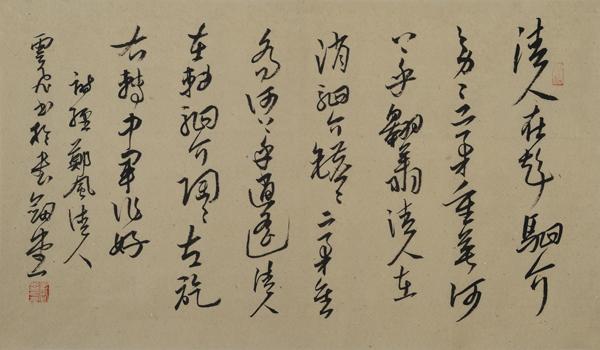 清人在彭駟介
旁々二矛重英河
上乎翱翔清人在
消駟介鑣々二矛重
喬河上乎逍遙清人
在軸駟介陶々左旋
右轉中軍作好
詩經鄭風清人
雲 書於 劍堂